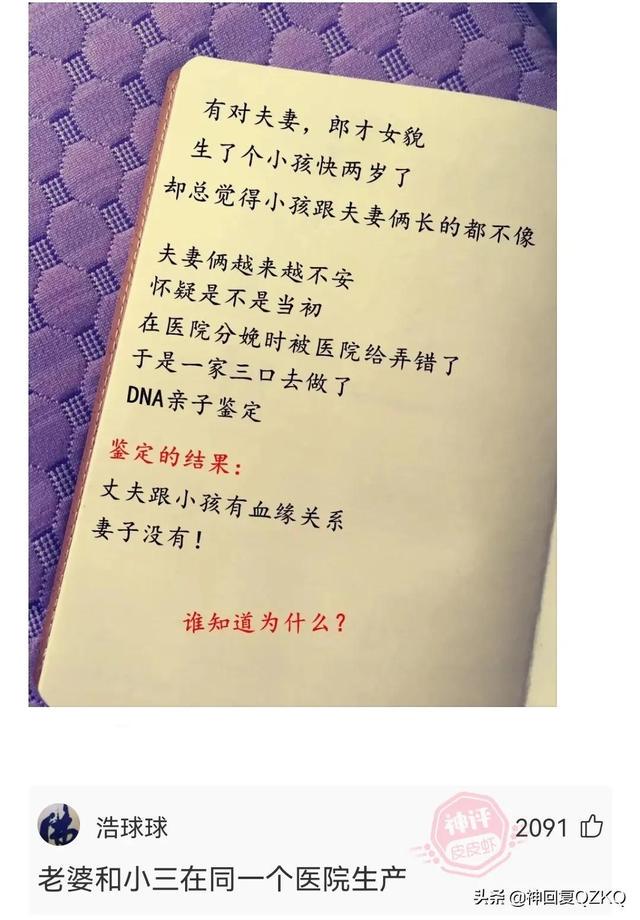 有对夫妻，郎才女貌
生了个小孩快两岁了
却总觉得小孩跟夫妻俩长的都不像
夫妻俩越来越不安
怀疑是不是当初
在医院分娩时被医院给弄错了
于是一家三口去做了
DNA亲子鉴定
鉴定的结果：
丈夫跟小孩有血缘关系
妻子没有！
谁知道为什么？
浩球球
神评
皮皮虾
2091
老婆和小三在同一个医院生产
头条 @神回复QZKQ